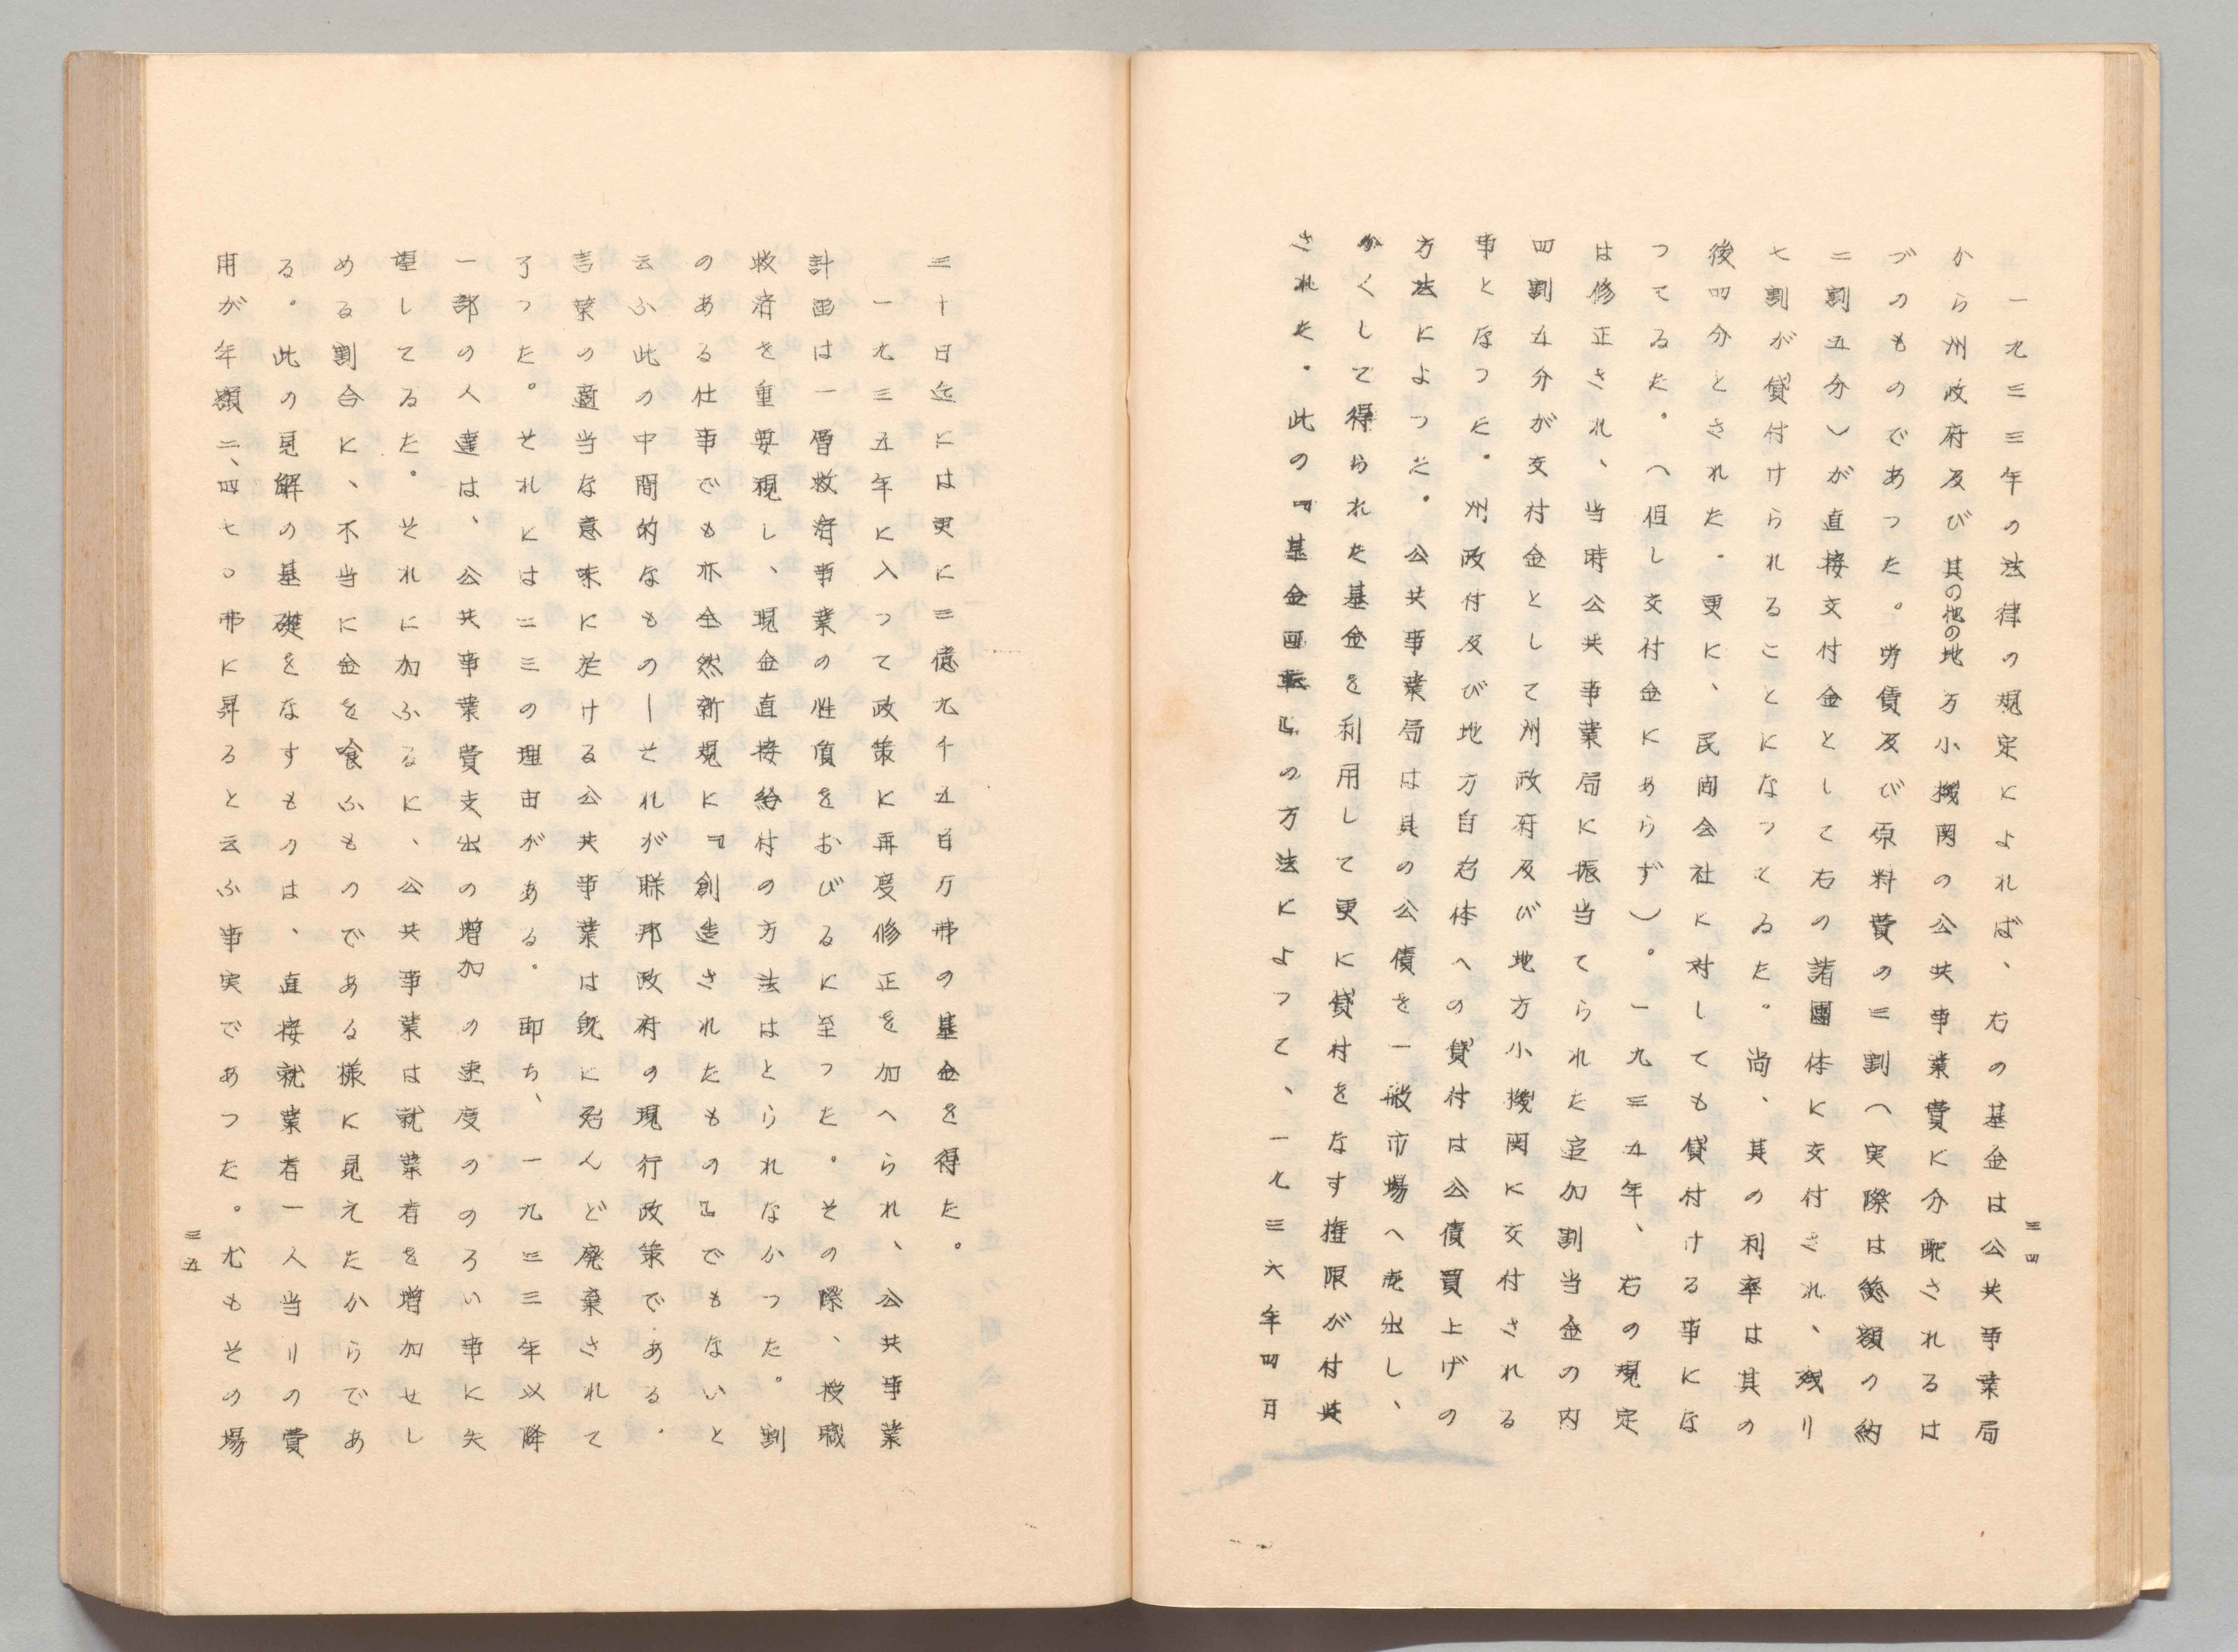 三四
一九三三年の法律の規定によれば、右の基金は公共事業局
から州政府及び其の他の地方小機関の公共事業費に分配されるは
づのものであつた。労賃及び原料費の三割(実際は総額の約
二割五分)が直接交付金として右の諸團体に交付され、残り
七割が貸付けられることになつてゐた。尚、其の利率は其の
後四分とされた。更に、民間会社に対しても貸付ける事にな
つてゐた。(但し交付金にあらず)。一九三五年、右の規定
は修正され、当時公共事業局に振当てられた追加割当金の内
四割五分が交付金として州政府及び地方小機関に交付される
事となつた。州政府及び地方自治体への貸付は公債買上げの
方法によつた。公共事業局は其の公債を一般市場へ売出し、
かくして得られた基金を利用して更に貸付をなす権限が付与
された。此の『基金回転』の方法によつて、一九三六年四月
三十日迄には更に三億九千五百万弗の基金を得た。
一九三五年に入つて政策に再度修正を加へられ、公共事業
計画は一層救済事業の性質をおびるに至つた。その際、授職
救済を重要視し、現金直接給付の方法はとられなかつた。割
のある仕事でも亦全然新規に『創造されたもの』でもないと
云ふ此の中間的なもの—それが聯邦政府の現行政策である。
言葉の適当な意味に於ける公共事業は既に殆んど廃棄されて
了つた。それには二三の理由がある。即ち、一九三三年以降
一部の人達は、公共事業費支出の増加の速度ののろい事に失
望してゐた。それに加ふるに、公共事業は就業者を増加せし
める割合に、不当に金を喰ふものである様に見えたからであ
る。此の見解の基礎をなすものは、直接就業者一人当りの費
用が年額二、四七〇弗に昇ると云ふ事実であつた。尤もその場
三五